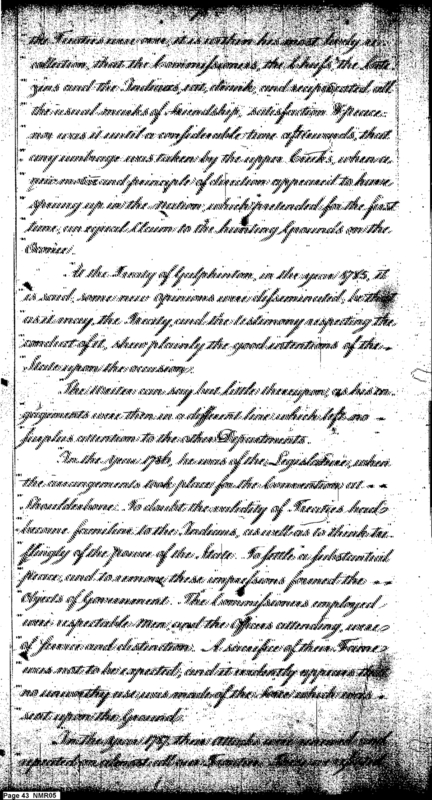 the Treaties were over, it is within his most lively re-
collection, that the Commissioners, the Chiefs, the Citi-
zens and the Indians, eat, drank, and reciprocated all
the usual marks of friendship, satisfaction & peace
nor was it until a considerable time afterwards, that
any umbrage was taken by the upper Creeks, when a
new motive and principle of direction appeared to have
sprung up in the Nation, which pretended for the first
time, an equal Claim to the hunting Grounds on the
Oconee.
At the Treaty of Galphinton, in the year 1785, it
is said, some new opinions were disseminated, be that
as it may, the Treaty, and the testimony respecting the
conduct of it, shew plainly the good intentions of the
State upon the occasion.
The Writer can say but little thereupon, as his en-
gagements were then in a different line which left no
surplus attention to the other Departments.
In the year 1786, he was of the Legislature, when
the arrangements took place for the Convention at
Shoulderbone. To doubt the validity of Treaties had
become familiar to the Indians, as well as to think tri-
flingly of the power of the State. To settle a substantial
peace, and to remove these impressions formed the
Objects of Government. The Commissioners employed
were respectable Men, and the Officers attending, were
of Service and distinction. A sacrifice of their Fame
was not to be expected, and it evidently appears that
no unworthy use was made of the force which was
sent upon the Ground.
In the year 1787, their attacks were renewed and
repeated on almost all our Frontier.
Page 43 NMR05